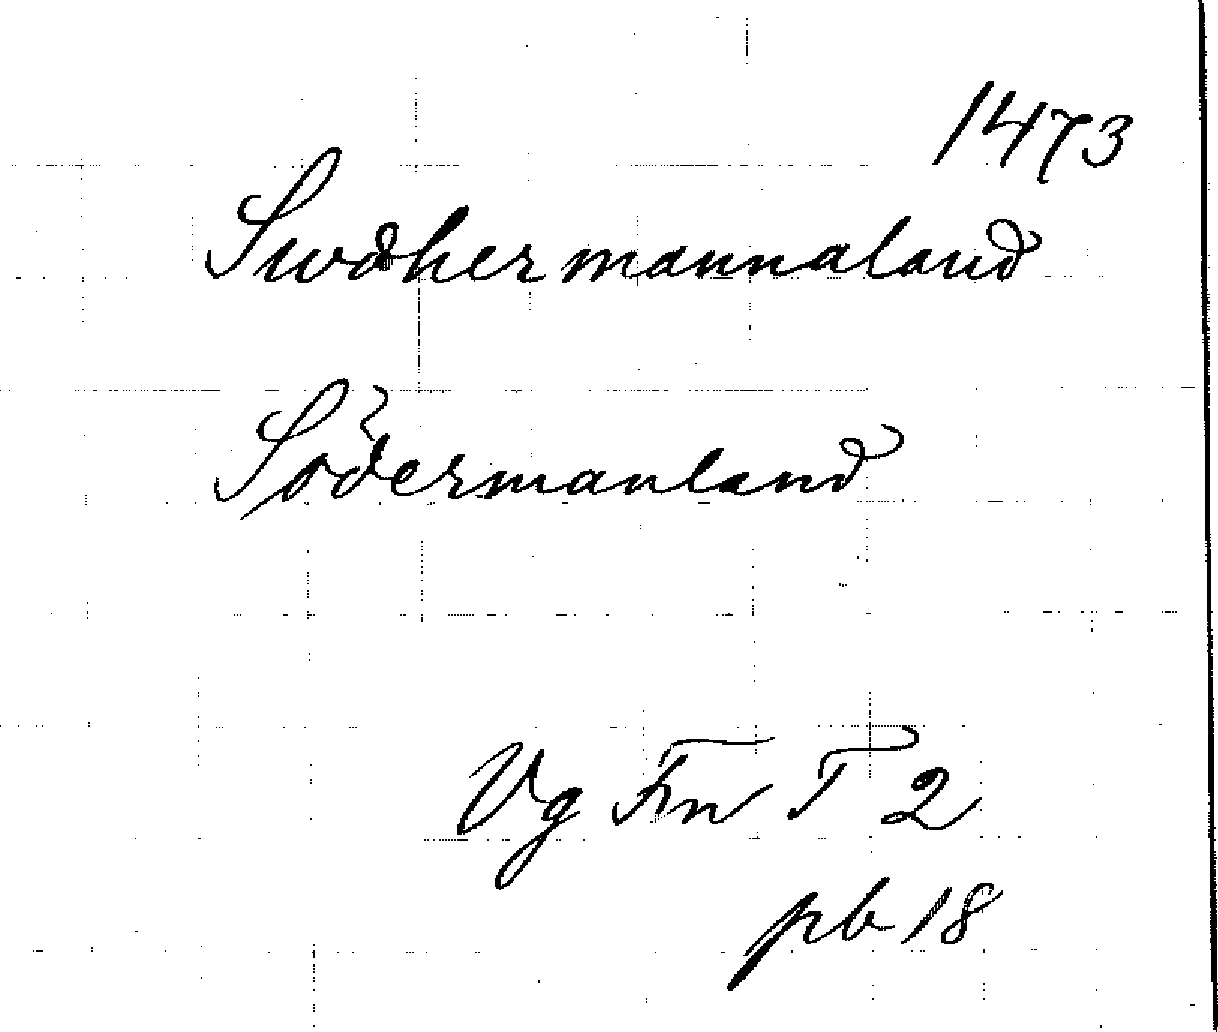 1473
Swdhermannaland
Södermanland
Vg Fn T 2
pb 18